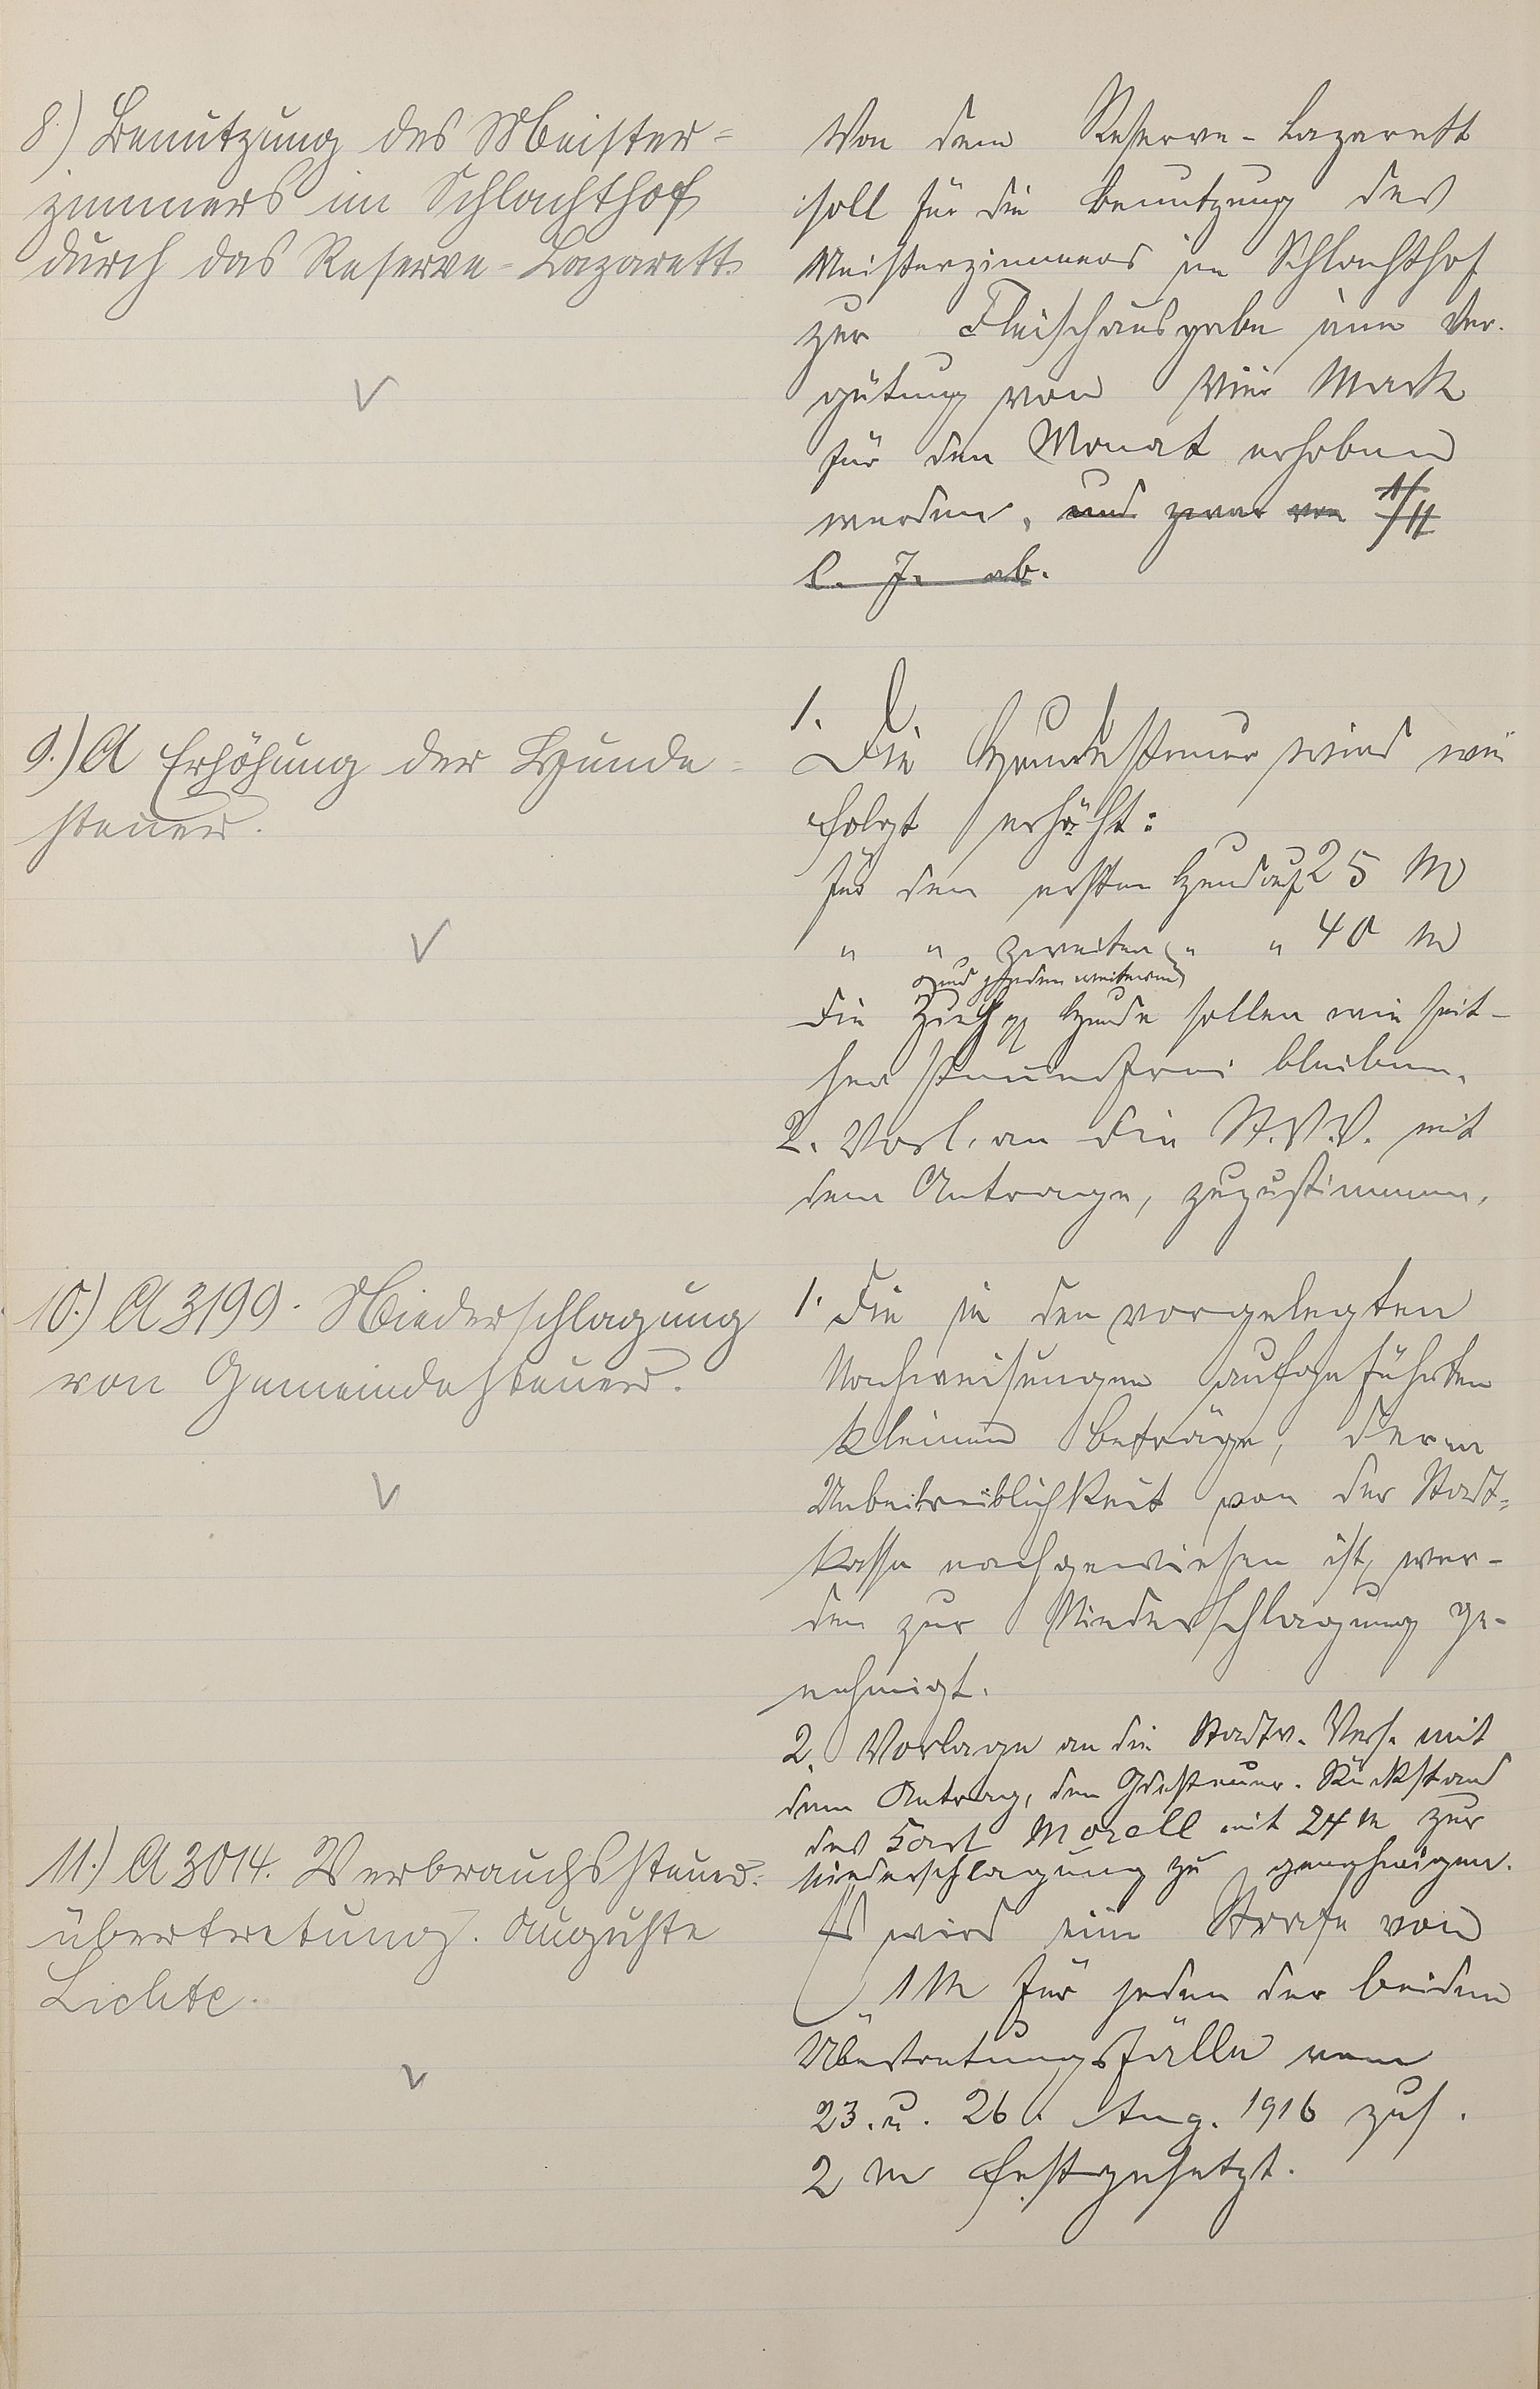 8.) Benutzung des Meister=
zimmers im Schlachthof
durch das Reserve-Lazarett.
Von dem Reserve-Lazarett
soll für die Benutzung des
Meisterzimmers im Schlachthof
zur Fleischausgabe eine Ver-
gütung von Vier Mark
für den Monat erhoben
werden, und zwar von 1/11
l. J. ab.
9.) A Erhöhung der Hunde=
steuer.
1.
Die Hundesteuer wird wie
folgt erhöht:
für den ersten Hund auf 25 M
" " zweiten " " 40 M
und jeden weiteren
Die Zieh Hunde sollen wie seit-
her steuerfrei bleiben.
2. Vorl. an die St.V.V. mit
dem Antrage, zuzustimmen.
10.) A 3199. Niederschlagung
von Gemeindesteuer.
1. Die in den vorgelegten
Nachweisungen aufgeführten
kleinen Beträge, deren
Unbeitreiblichkeit von der Stadt=
kasse nachgewiesen ist, wer-
den zur Niederschlagung ge-
nehmigt.
2. Vorlage an die Stadtv. Vers. mit
dem Antrag, den Gdesteuer-Rückstand
des Morell mit 24 M zur
Niederschlagung zu genehmigen.
11.) A 3014. Verbrauchssteuer=
übertretung. Auguste
Lichte.
Es wird eine Strafe von
1 M für jeden der beiden
Übertretungsfälle vom
23. u. 26. Aug. 1916 zus.
2 M festgesetzt.